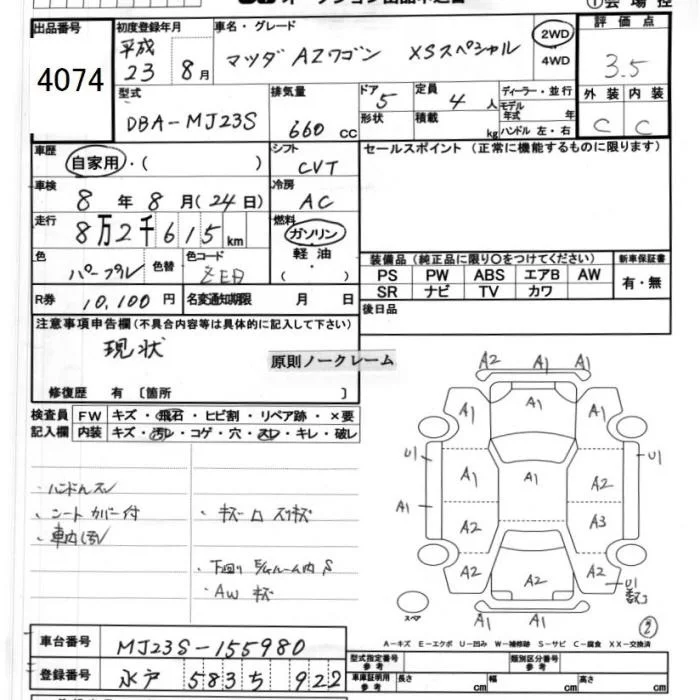 出品番号 初度登録年月 車名・グレード 評価点
4074 平成 23 8月 マツダ AZワゴン XSスペシャル 2WD 4WD 3.5
外装 内装
C C
型式 排気量 ドア 定員 ディーラー・並行
DBA-MJ23S 660 cc 5 4 人 モデル年式 年
形状 積載 kg ハンドル 左・右
車歴 自家用・( ) シフト CVT セールスポイント(正常に機能するものに限ります)
車検 8 年 8 月(24日) 冷房 AC
走行 8万2千615 km 燃料 ガソリン
軽油
( )
色 パープル 色替 色コード ZED
装備品(純正品に限り〇をつけてください) 新車保証書
PS PW ABS エアB AW 有・無
SR ナビ TV カワ
R券 10,100 円 名変通知期限 月 日 後日品
注意事項申告欄(不具合内容等は具体的に記入して下さい)
現状
原則ノークレーム
修復歴 有 〔箇所 〕
検査員 FW キズ・飛石・ヒビ割・リペア跡・×要
記入欄 内装 キズ・汚レ・コゲ・穴・スレ・キレ・破レ
・ハンドルスレ
・シートカバー付
・車内汚レ
・下回り
・AW キズ
A2 A1 A1
A1 A1 A1
U1 U1
A1 A1 A2
A1
A2 A3
A2 A2 A2 U1
A2 A1 A1
スペア
2
A-キズ E-エクボ U-凹み W-補修跡 S-サビ C-腐食 XX-交換済
車台番号 MJ23S-155980
型式指定番号 参考 類別区分番号 参考
登録番号 水戸 583 922
車庫証明用 参考 長さ cm 幅 cm 高さ cm